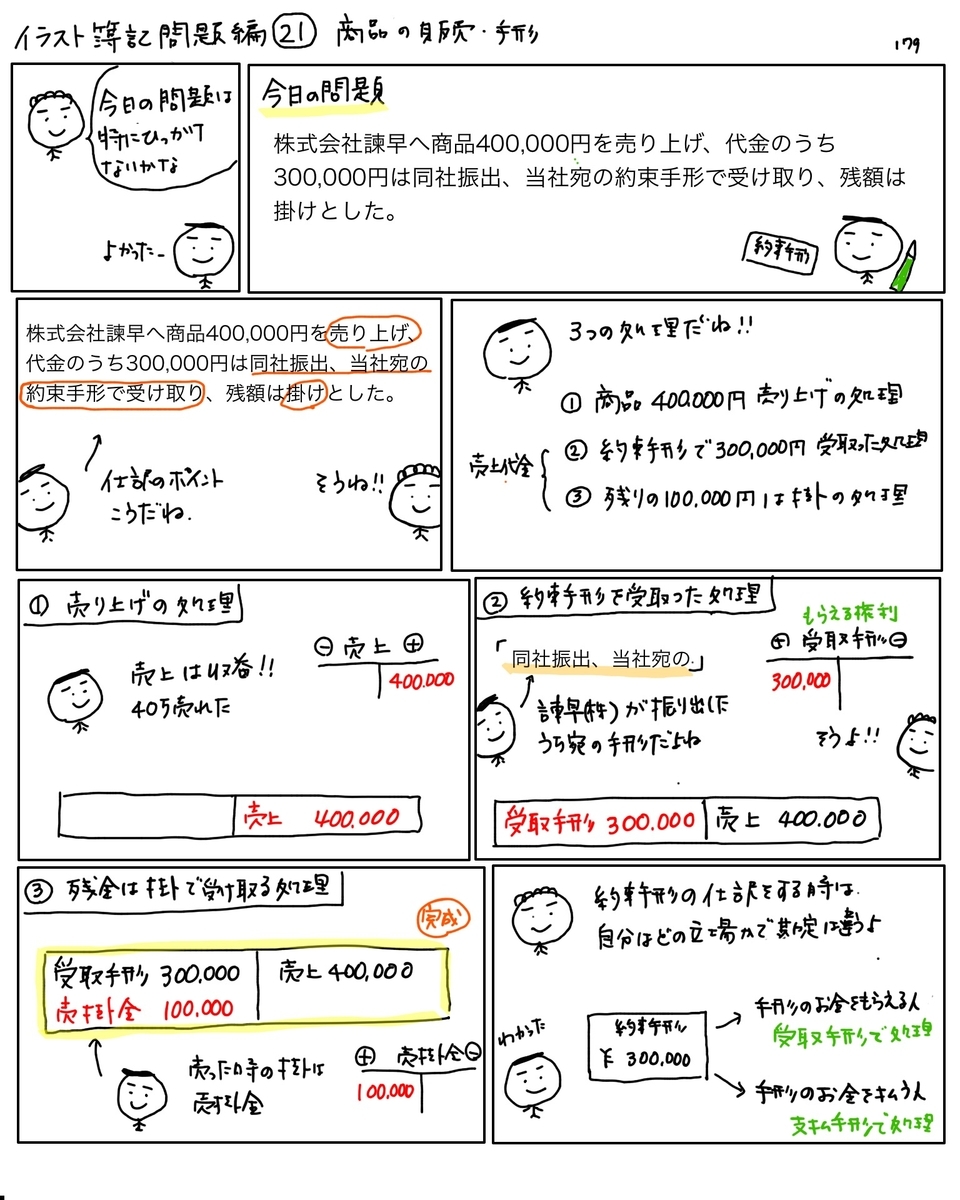 イラスト簿記問題編㉑ 商品の販売・手形
179
今日の問題は
特にひっかけ
ないかな
よかった〜
今日の問題
株式会社諫早へ商品400,000円を売り上げ、代金のうち
300,000円は同社振出、当社宛の約束手形で受け取り、残額は
掛けとした。
約束手形
株式会社諫早へ商品400,000円を売り上げ、
代金のうち300,000円は同社振出、当社宛の
約束手形で受け取り、残額は掛けとした。
仕訳のポイント
こうだね.
そうね!!
3つの処理だね!!
① 商品 400.000円 売り上げの処理
売上代金
② 約束手形で300,000円 受取った処理
③ 残りの100,000円は掛の処理
① 売り上げの処理
売上は収益!!
40万売れた
⊖ 売上 ⊕
400.000
売上 400.000
② 約束手形を受取った処理
「同社振出、当社宛の」
諫早(株)が振り出した
うち宛の手形だよね
もらえる権利
⊕ 受取手形 ⊖
300,000
そうよ!!
受取手形 300.000 売上 400.000
③ 残金は掛で受け取る処理
完成
受取手形 300,000 売上 400,000
売掛金 100,000
売った時の掛は
売掛金
⊕ 売掛金 ⊖
100,000
約束手形の仕訳をする時は.
自分はどの立場かで勘定は違うよ
わかった
約束手形
¥ 300,000
手形のお金をもらえる人
受取手形で処理
手形のお金を払う人
支払手形で処理